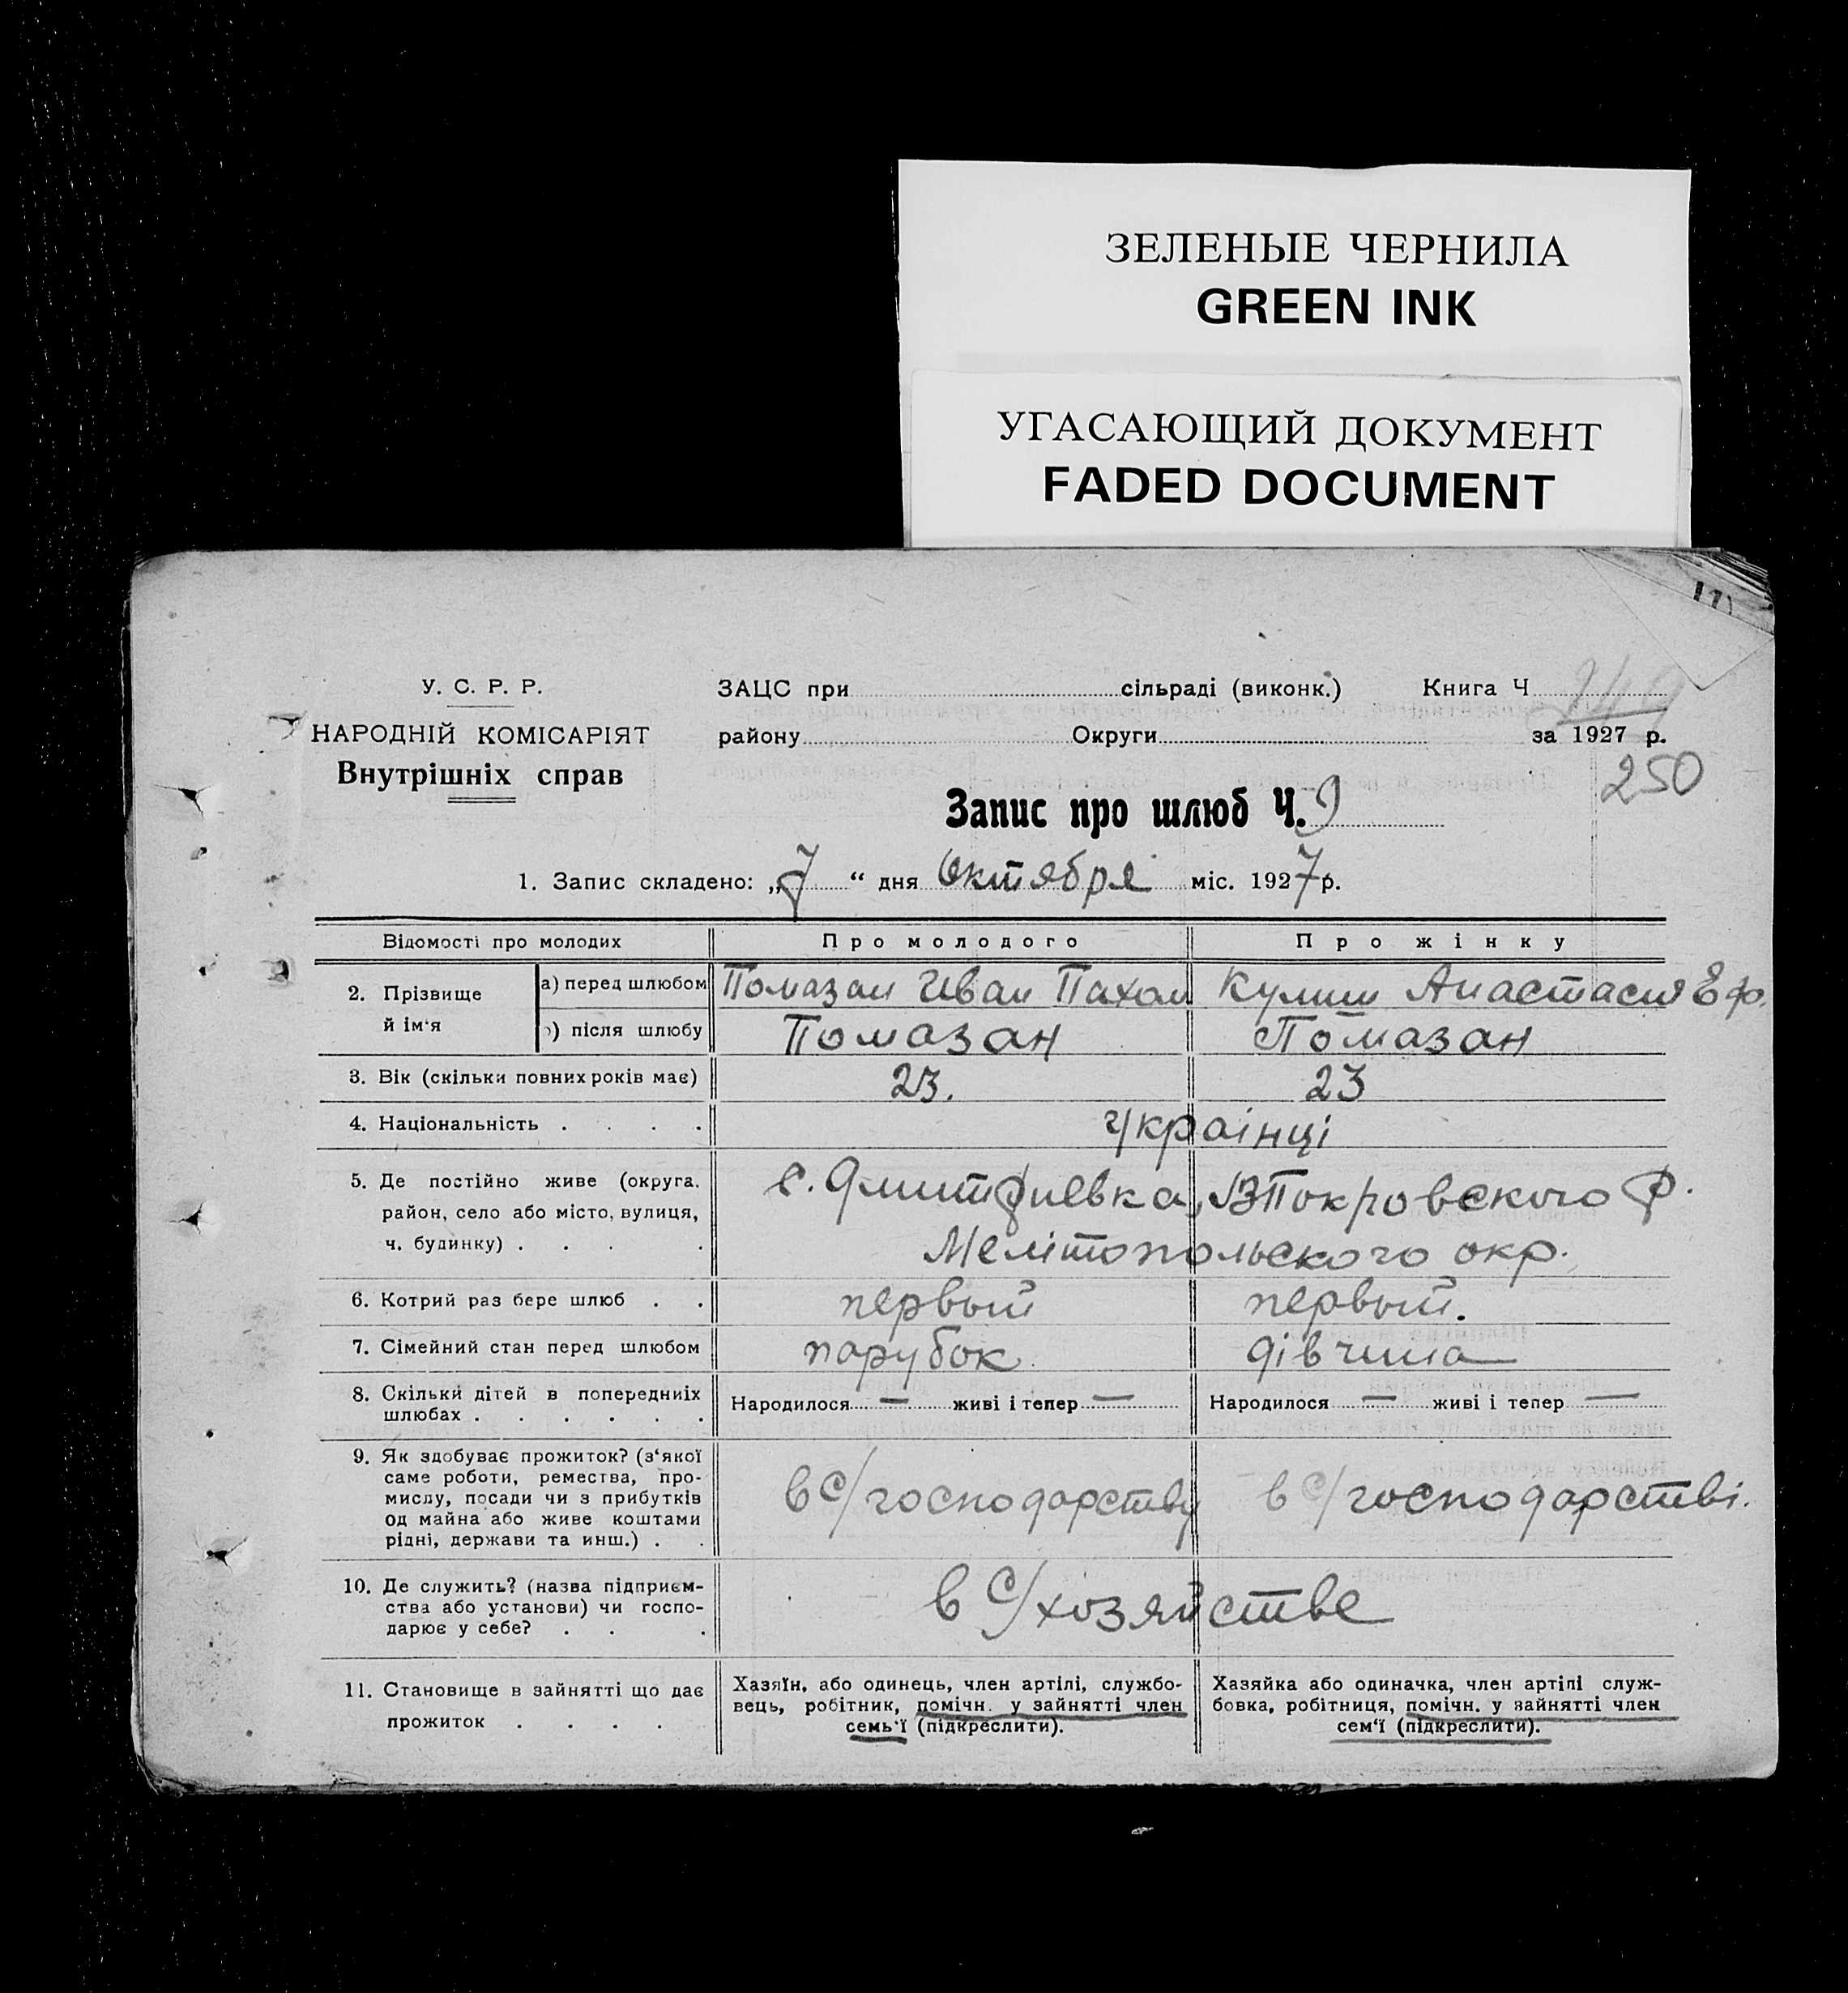 ЗЕЛЕНЫЕ ЧЕРНИЛА
GREEN INK
УГАСАЮЩИЙ ДОКУМЕНТ
FADED DOCUMENT
У. С. Р. Р.
НАРОДНІЙ КОМІСАРІЯТ
Внутрішніх справ
ЗАЦС при сільраді (виконк.) Книга Ч 249
району Округи за 1927 р.
250
Запис про шлюб Ч. 9
1. Запис складено: „7“ дня Октября міс. 1927 р.
Відомості про молодих Про молодого Про жінку
2. Прізвище й ім'я
а) перед шлюбом Помазан Иван Пахом Кулиш Анастасия Еф.
б) після шлюбу Помазан Помазан
3. Вік (скільки повних років має) 23. 23
4. Національність . . . . Українці
5. Де постійно живе (округа,
район, село або місто, вулиця,
ч. будинку) . . .
с. Дмитриевка, Покровского р.
Мелітопольского окр.
6. Котрий раз бере шлюб . . первый первый.
7. Сімейний стан перед шлюбом парубок дівчина
8. Скільки дітей в попередниіх
шлюбах . . . . . .
Народилося — живі і тепер — Народилося — живі і тепер —
9. Як здобуває прожиток? (з‘якої
саме роботи, ремества, про-
мислу, посади чи з прибутків
од майна або живе коштами
рідні, держави та инш.) . .
в с/господарству в с/господарстві.
10. Де служить? (назва підприєм-
ства або установи) чи госпо-
дарює у себе? . . .
в с/хозяйстве
11. Становище в зайнятті що дає
прожиток . . . .
Хазяїн, або одинець, член артілі, службо-
вець, робітник, помічн. у зайнятті член
семь'ї (підкреслити).
Хазяйка або одиначка, член артілі служ-
бовка, робітниця, помічн. у зайнятті член
сем‘ї (підкреслити).